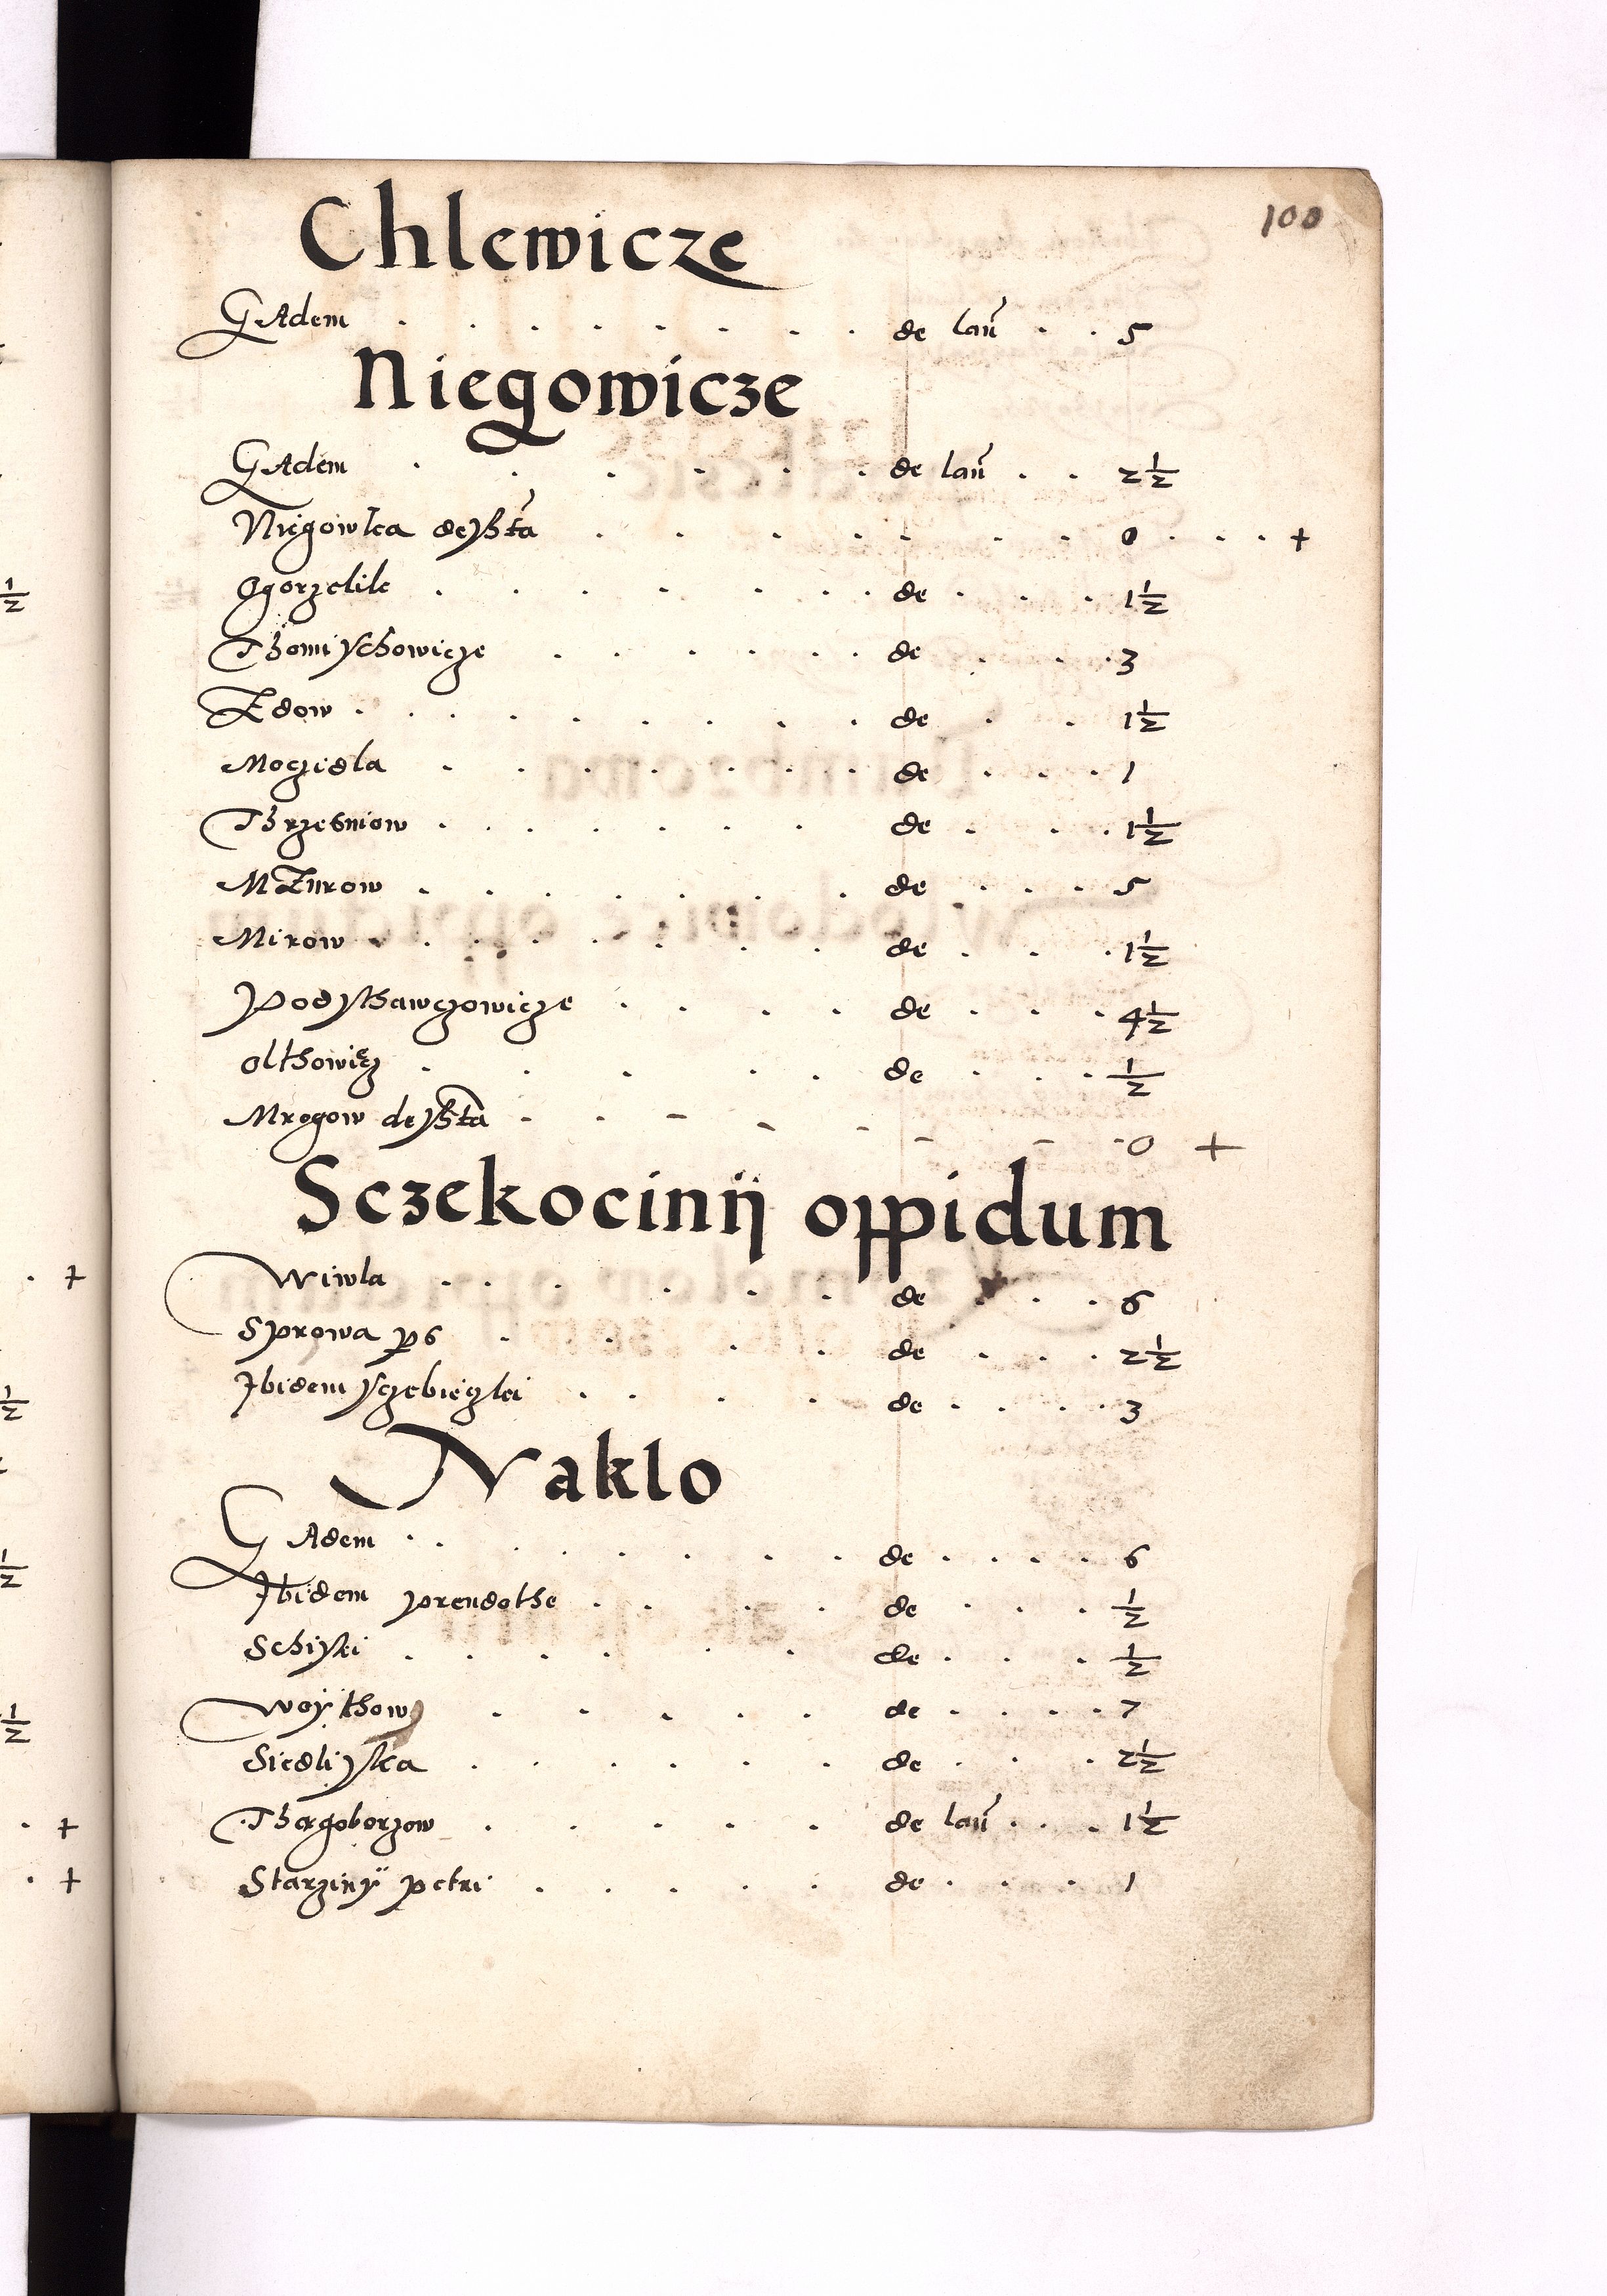 100
Chlewicze
Eadem . . . . . . . . de lań . . 5
Niegowicze
Eadem . . . . . . de lań . . 2 1/2
Niegowka desta . . . . . . . 0 . . . +
Ogorzelik . . . . . . . de . . . 1 1/2
Thomischowicze . . . . . . de . . . 3
Zdow . . . . . . . . de . . 1 1/2
Moczidla . . . . . . . de . . . 1
Thrzesniow . . . . . . . de . . . 1 1/2
Mzurow . . . . . . . de . . . 5
Mirow . . . . . . . . de . . . 1 1/2
Posthawczowicze . . . . de . . . 4 1/2
olthowiecz . . . . . de . . . 1/2
Mrogow desta . . - - - - - 0 +
Sczekocinij oppidum
Wiwla . . . . . . de . . . 6
Sprowa ps . . . . de . . . 2 1/2
Ibidem sczebieczki . . . . de . . . 3
Naklo
Eadem . . . . . . . . de . . . . 6
Ibidem prendothe . . . . de . . . 1/2
Schiski . . . . . . de . . . 1/2
Woythow . . . . . de . . . . 7
Siedliska . . . . . . de . . . 2 1/2
Thargoborzow . . . . . de lań . . . 1 1/2
Starziny petri . . . . . de . . . 1